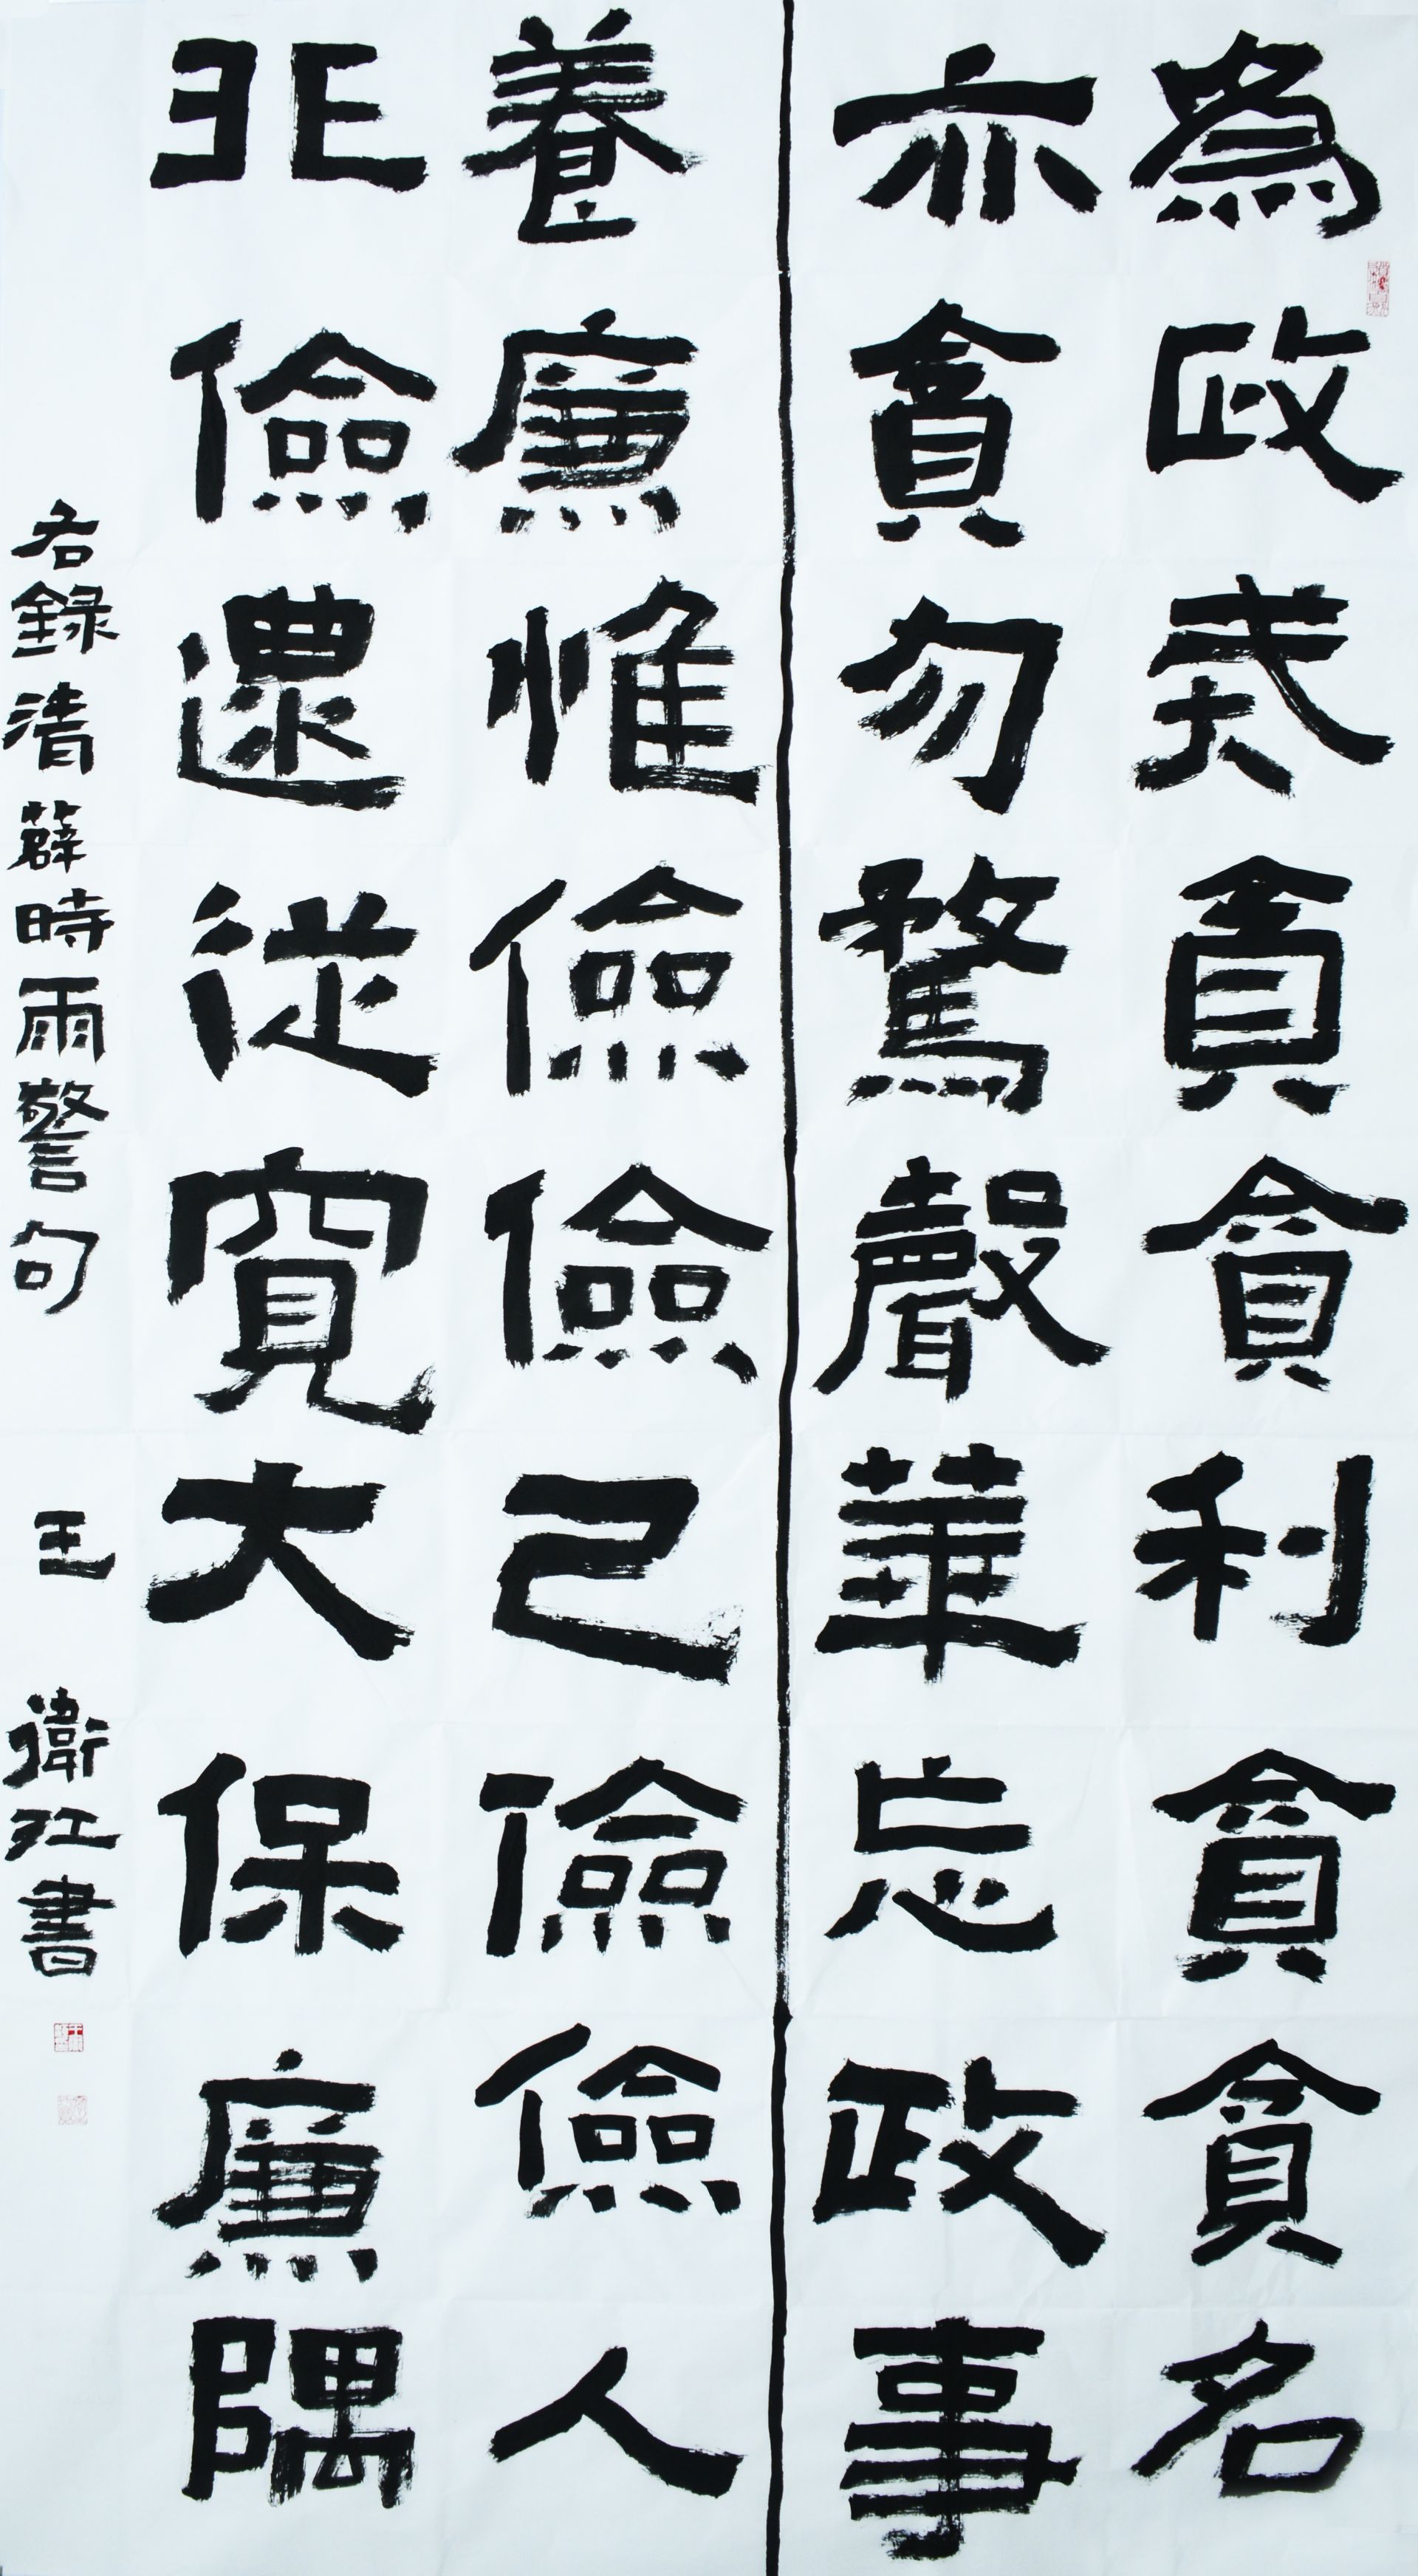 為政戒貪貪利貪貪名
亦貪勿騖聲華忘政事
養廉惟儉儉己儉儉人
非儉還從寬大保廉隅
右錄清薛時雨警句 王衛江書